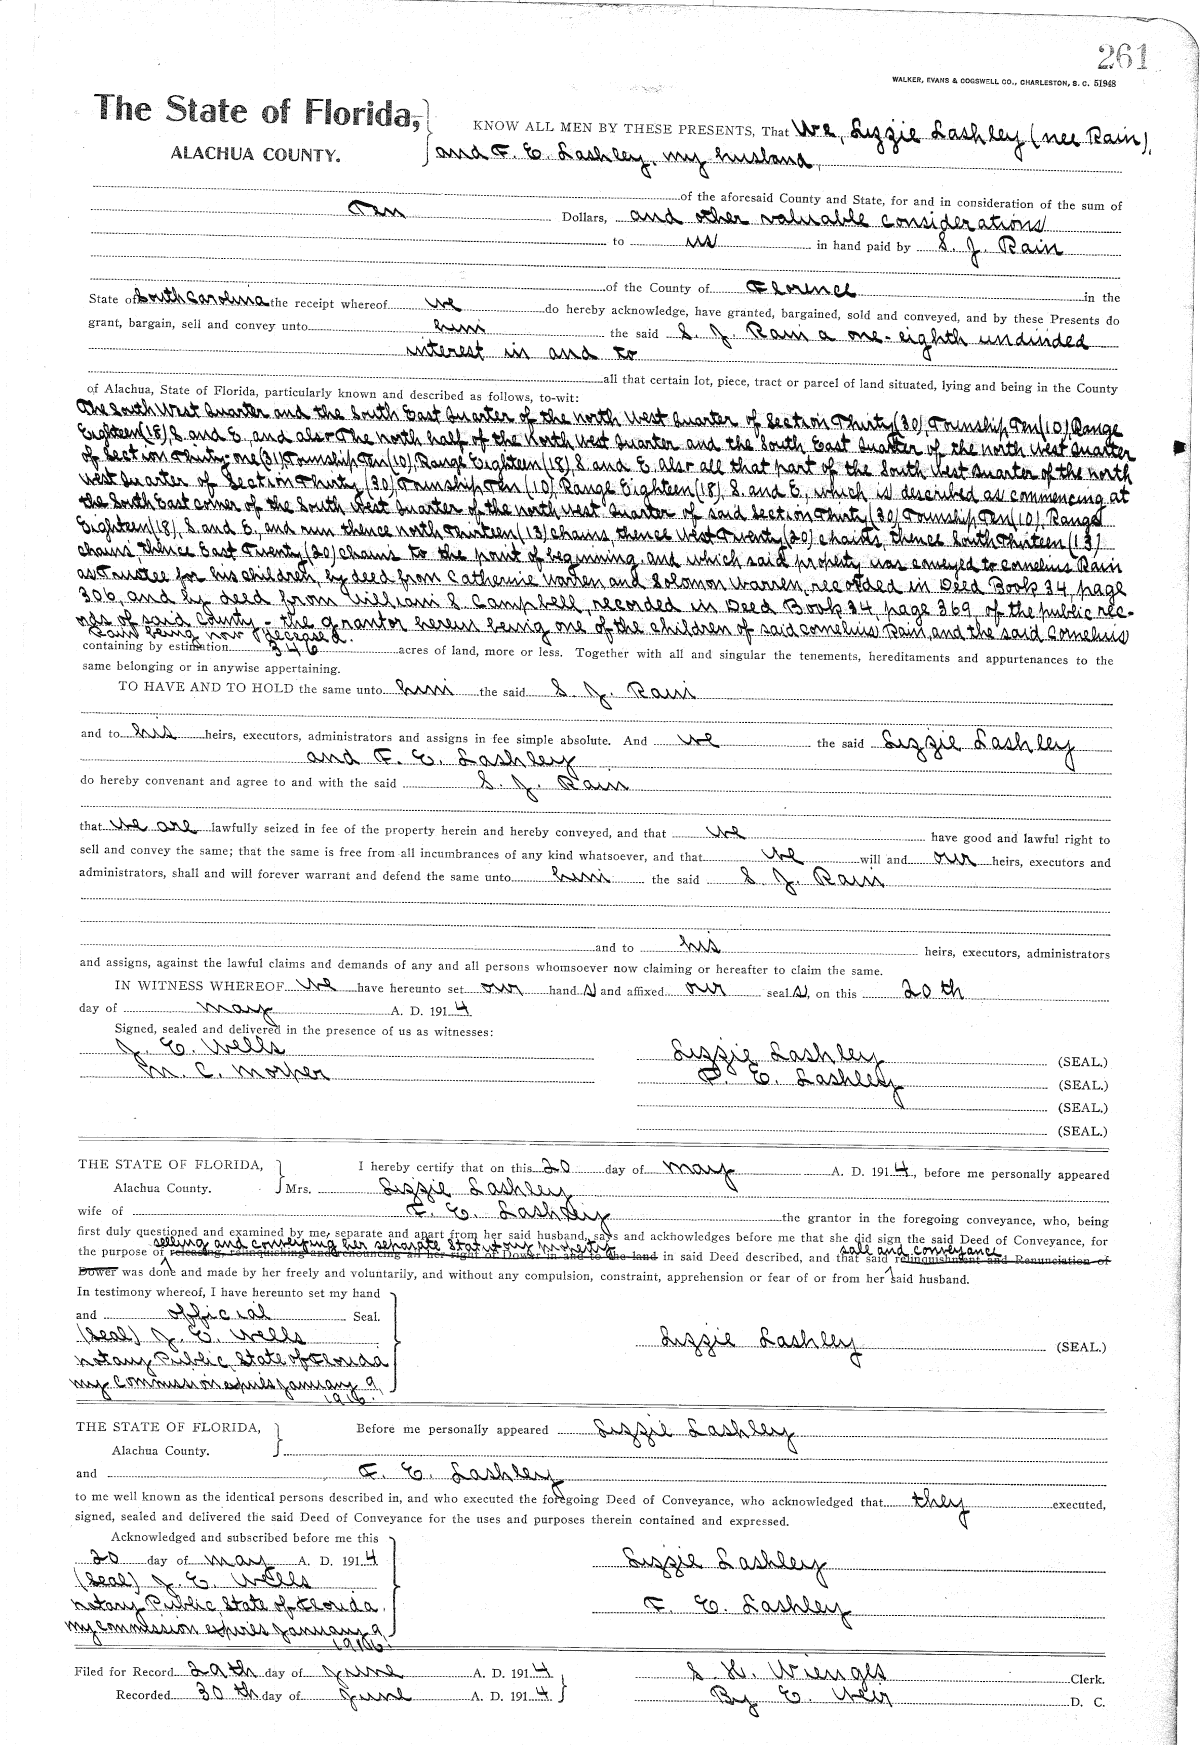 261
WALKER, EVANS & COGSWELL CO., CHARLESTON, S. C. 51948
The State of Florida,
ALACHUA COUNTY.
KNOW ALL MEN BY THESE PRESENTS, That We, Lizzie Lashley (nee Rain),
and F. E. Lashley, my husband,
of the aforesaid County and State, for and in consideration of the sum of
Ten Dollars, and other valuable considerations
to us in hand paid by S. J. Rain
of the County of Florence in the
State of South Carolina the receipt whereof we do hereby acknowledge, have granted, bargained, sold and conveyed, and by these Presents do
grant, bargain, sell and convey unto him the said S. J. Rain a one-eighth undivided
interest in and to
all that certain lot, piece, tract or parcel of land situated, lying and being in the County
of Alachua, State of Florida, particularly known and described as follows, to-wit:
The South West Quarter and the South East Quarter of the north West Quarter of Section Thirty (30), Township Ten (10) Range
Eighteen (18) S. and E, and also The north half of the North West Quarter and the South East Quarter of the north West Quarter
of Section Thirty-one (31), Township Ten (10), Range Eighteen (18) S. and E. Also all that part of the South West Quarter of the north
West Quarter of Section Thirty (30) Township Ten (10), Range Eighteen (18), S. and E, which is described as commencing at
the South East corner of the South West Quarter of the north West Quarter of said Section Thirty (30) Township Ten (10), Range
Eighteen (18) S. and E, and run thence north Thirteen (13) chains, thence West Twenty (20) chains, thence South Thirteen (13)
chains thence East Twenty (20) chains to the point of beginning and which said property was conveyed to Cornelius Rain
as Trustee for his children, by deed from Catherine Warren and Solomon Warren, recorded in Deed Book 34, page
306, and by deed from William S. Campbell, recorded in Deed Book 34, page 369, of the public rec-
ords of said County - the grantor herein being one of the children of said Cornelius Rain, and the said Cornelius
Rain being now deceased.
containing by estimation 346 acres of land, more or less. Together with all and singular the tenements, hereditaments and appurtenances to the
same belonging or in anywise appertaining.
TO HAVE AND TO HOLD the same unto him the said S. J. Rain
and to his heirs, executors, administrators and assigns in fee simple absolute. And we the said Lizzie Lashley
and F. E. Lashley
do hereby convenant and agree to and with the said S. J. Rain
that we are lawfully seized in fee of the property herein and hereby conveyed, and that we have good and lawful right to
sell and convey the same; that the same is free from all incumbrances of any kind whatsoever, and that we will and our heirs, executors and
administrators, shall and will forever warrant and defend the same unto him the said S. J. Rain
and to his heirs, executors, administrators
and assigns, against the lawful claims and demands of any and all persons whomsoever now claiming or hereafter to claim the same.
IN WITNESS WHEREOF we have hereunto set our hand s and affixed our seal s, on this 20th
day of May A. D. 1914
Signed, sealed and delivered in the presence of us as witnesses:
J. E. Wells Lizzie Lashley (SEAL.)
M. C. Mosher F. E. Lashley (SEAL.)
(SEAL.)
(SEAL.)
THE STATE OF FLORIDA, I hereby certify that on this 20 day of May A. D. 1914, before me personally appeared
Alachua County. Mrs. Lizzie Lashley
wife of F. E. Lashley the grantor in the foregoing conveyance, who, being
first duly questioned and examined by me, separate and apart from her said husband, says and acknowledges before me that she did sign the said Deed of Conveyance, for
selling and conveying her separate Statutory property sale and conveyance
the purpose of releasing, relinquishing and renouncing of her right of Dower in and to the land in said Deed described, and that said relinquishment and Renunciation of
Dower was done and made by her freely and voluntarily, and without any compulsion, constraint, apprehension or fear of or from her said husband.
In testimony whereof, I have hereunto set my hand
and official Seal.
(Seal) J. E. Wells
Notary Public, State of Florida
My Commission expires January 9,
1916.
Lizzie Lashley (SEAL.)
THE STATE OF FLORIDA, Before me personally appeared Lizzie Lashley
Alachua County.
and F. E. Lashley
to me well known as the identical persons described in, and who executed the foregoing Deed of Conveyance, who acknowledged that they executed,
signed, sealed and delivered the said Deed of Conveyance for the uses and purposes therein contained and expressed.
Acknowledged and subscribed before me this
20 day of May A. D. 1914 Lizzie Lashley
(Seal) J. E. Wells
Notary Public, State of Florida. F. E. Lashley
My Commission expires January 9,
1916.
Filed for Record 29th day of June A. D. 1914 S. H. Wienges Clerk.
Recorded 30th day of June A. D. 1914. By E. Weir D. C.